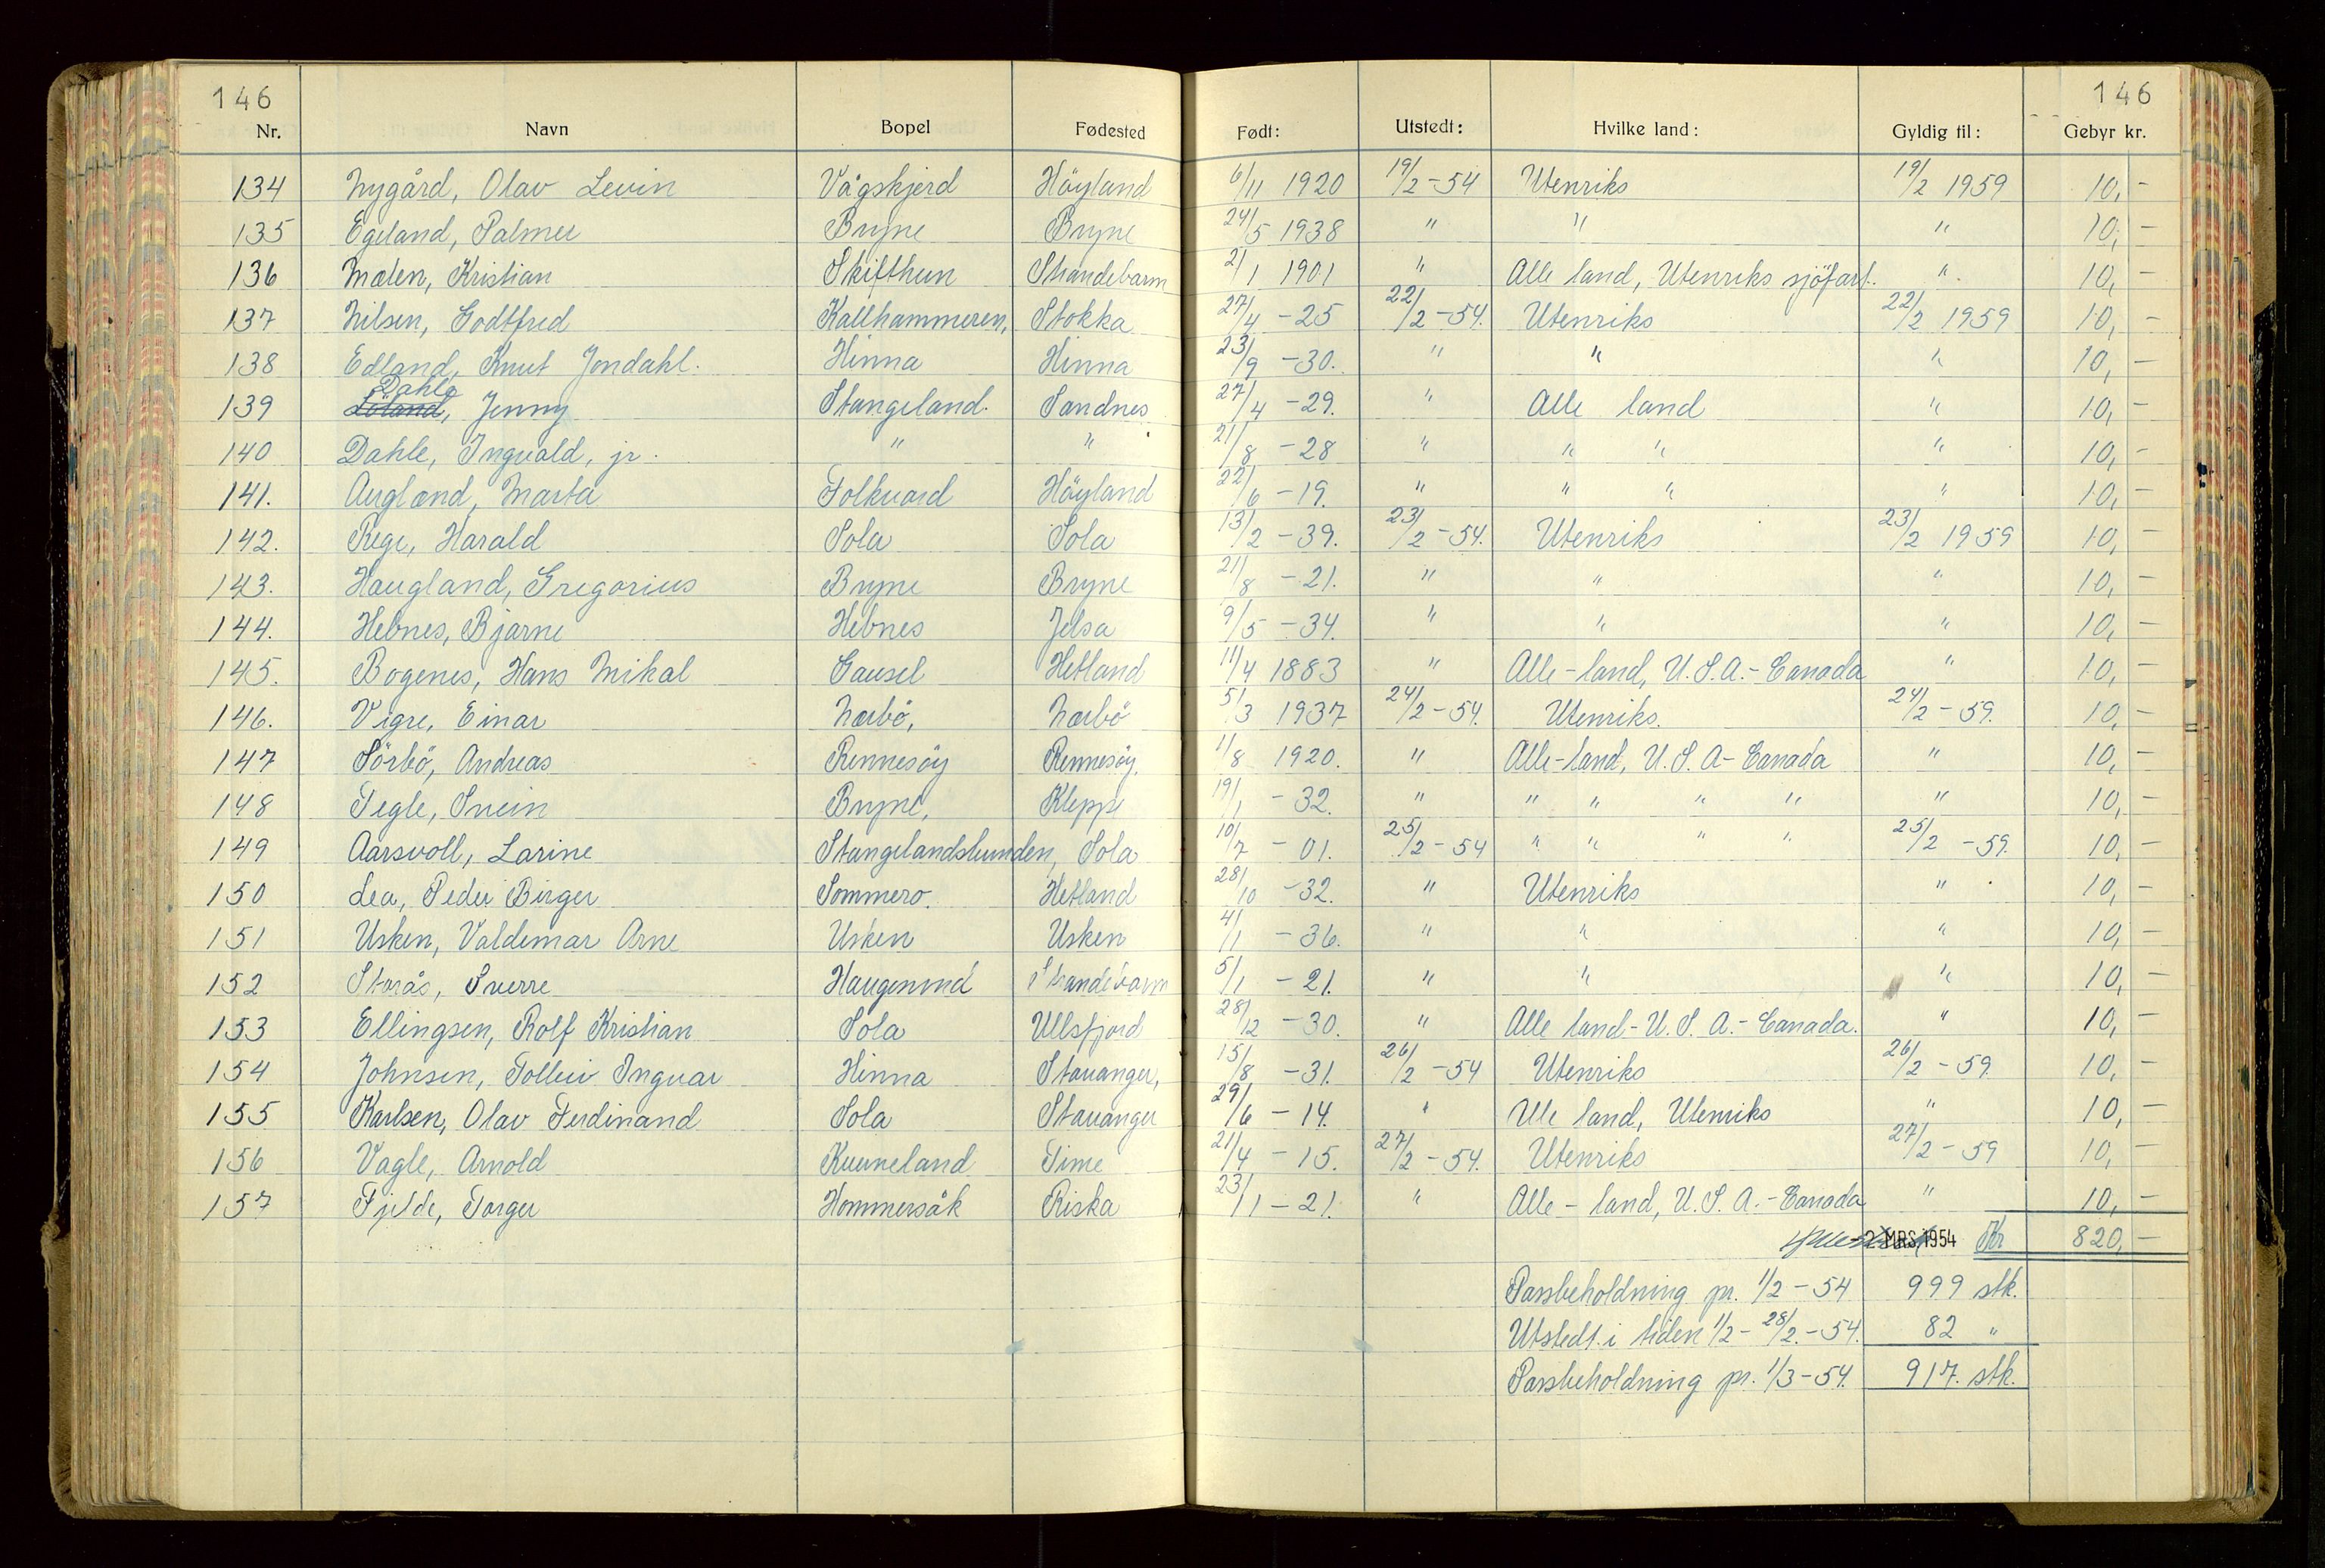 146 146
Nr. Navn Bopel Fødested Født: Utstedt: Hvilke land: Gyldig til: Gebyr kr.
134 Nygård, Olav Levin Vågskjerd Höyland 6/11 1920 19/2-54 Utenriks 19/2 1959 10,-
135 Egeland, Palmer Bryne Bryne 24/5 1938 " " " 10,-
136 Mælen, Kristian Skifthun Strandebarm 2/1 1901 " Alle land, Utenriks sjöfart. " 10,-
137 Nilsen, Godtfred Kallhammeren, Stokka 27/4 -25 22/2-54. Utenriks 22/2 1959 10,-
138 Edland, Knut Jondahl. Hinna Hinna 23/9 -30. " " " 10,-
Dahle
139 Löland, Jenny Stangeland. Sandnes 27/4 -29. " Alle land " 10,-
140 Dahle, Ingvald, jr. " " 21/8 -28 " " " " 10,-
141. Augland, Marta Folkvard Höyland 22/6 -19. " " " " 10,-
142. Rege, Harald Sola Sola 13/2 -39. 23/2-54. Utenriks 23/2 1959 10,-
143. Haugland, Gregorius Bryne Bryne 21/8 -21. " " " 10,-
144. Hebnes, Bjarne Hebnes Jelsa 9/5 -34. " " " 10,-
145. Bogenes, Hans Mikal Gausel Hetland 11/4 1883 " Alle-land, U.S.A.-Canada " 10,-
146. Vigre, Einar Nærbö, Nærbö 5/3 1937 24/2-54. Utenriks. 24/2-59. 10,-
147 Sörbö, Andreas Rennesöy Rennesöy. 1/8 1920. " Alle-land, U.S.A-Canada " 10,-
148 Tegle, Svein Bryne, Klepp 19/1 -32. " " " " " " 10,-
149 Aarsvoll, Larine Stangelandslunden, Sola 10/7 -01. 25/2-54 " " " " 25/2 -59. 10,-
150 Lea, Peder Birger Sommero. Hetland 28/10 -32. " Utenriks " 10,-
151 Usken, Valdemar Arne Usken Usken 4/1 -36. " " " 10,-
152 Storås, Sverre Haugesund Strandebarm 5/1 -21. " " " 10,-
153 Ellingsen, Rolf Kristian Sola Ullsfjord 28/12 -30. " Alle land-U.S.A.-Canada. " 10,-
154 Johnsen, Tolleiv Ingvar Hinna Stavanger, 15/8 -31. 26/2-54 Utenriks 26/2-59. 10,-
155 Karlsen, Olav Ferdinand Sola Stavanger 29/6 -14. " Alle land, Utenriks " 10,-
156 Vagle, Arnold Kverneland Time 21/4 -15. 27/2-54. Utenriks 27/2-59 10,-
157 Fjelde, Torger Hommersåk Riska 23/1 -21. " Alle-land, U.S.A.-Canada " 10,-
-2 MRS. 1954 Kr 820,-
Passbeholdning pr. 1/2-54 999 stk.
Utstedt i tiden 1/2-28/2.-54. 82 "
Passbeholdning pr. 1/3-54. 917. stk.